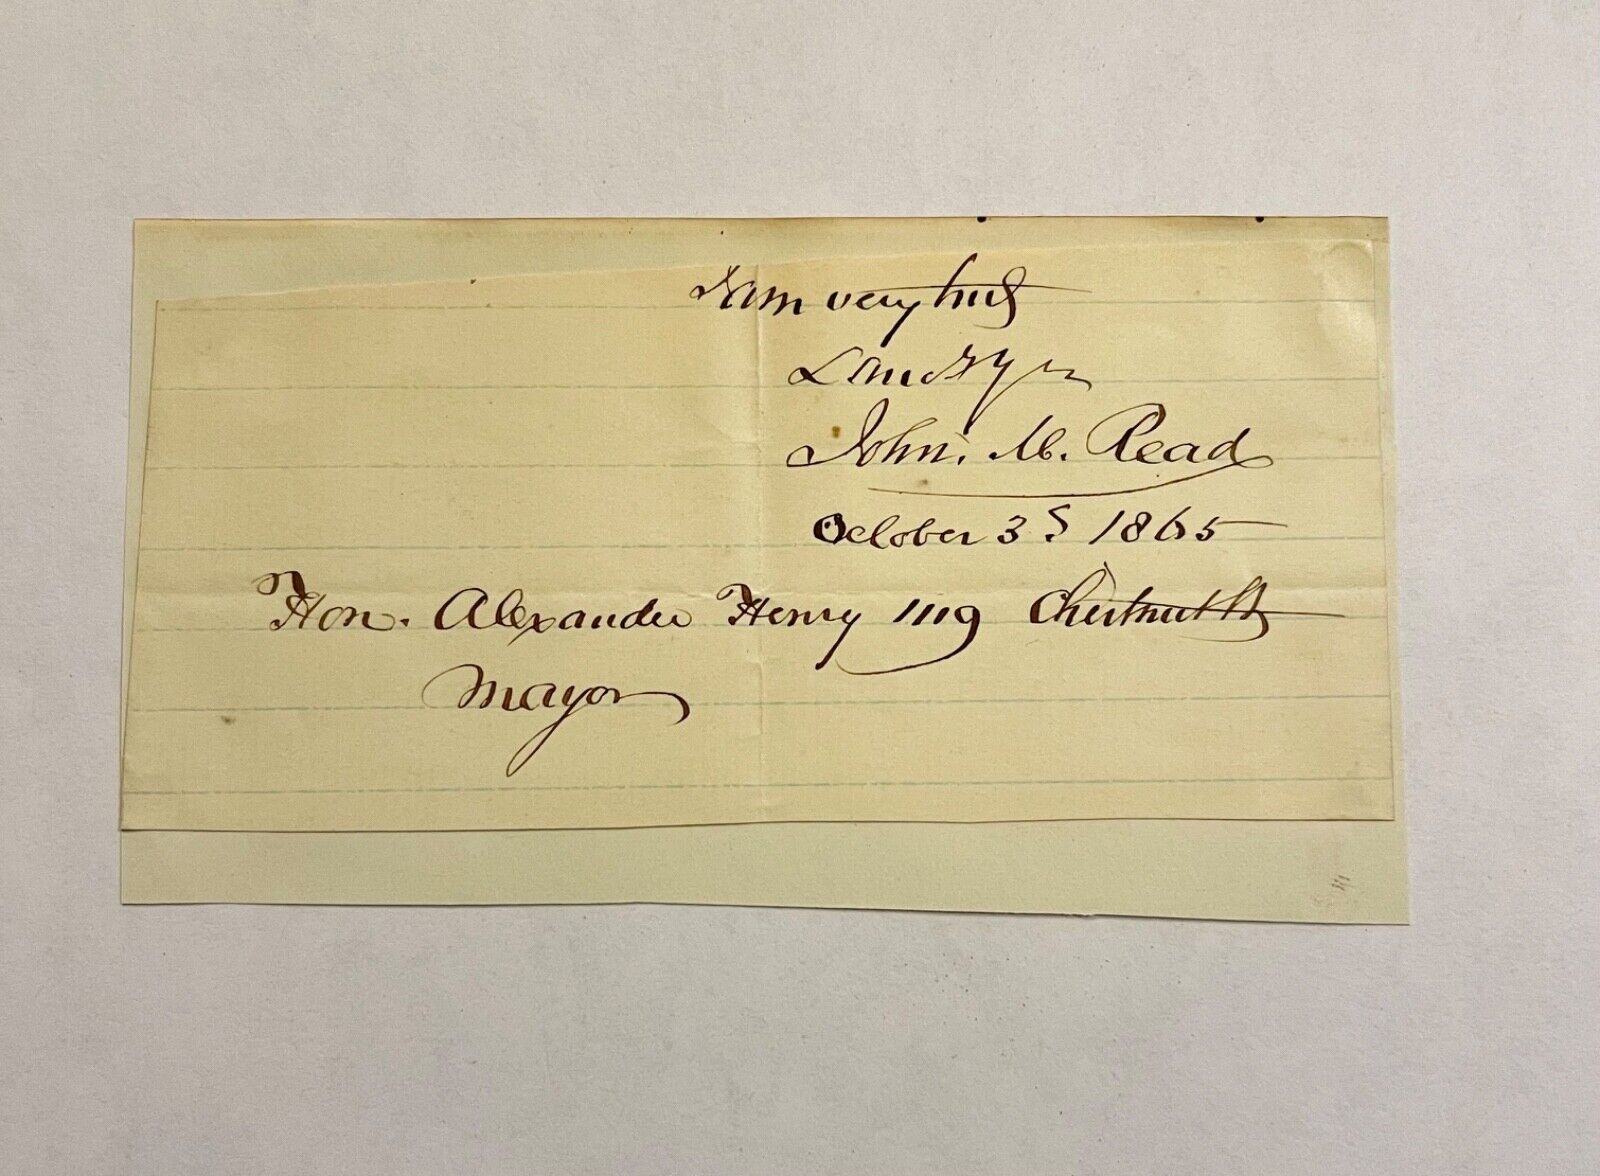 I am very truly
John. M. Read
October 3d 1865
Hon. Alexander Henry 1119 Chestnut St
Mayor